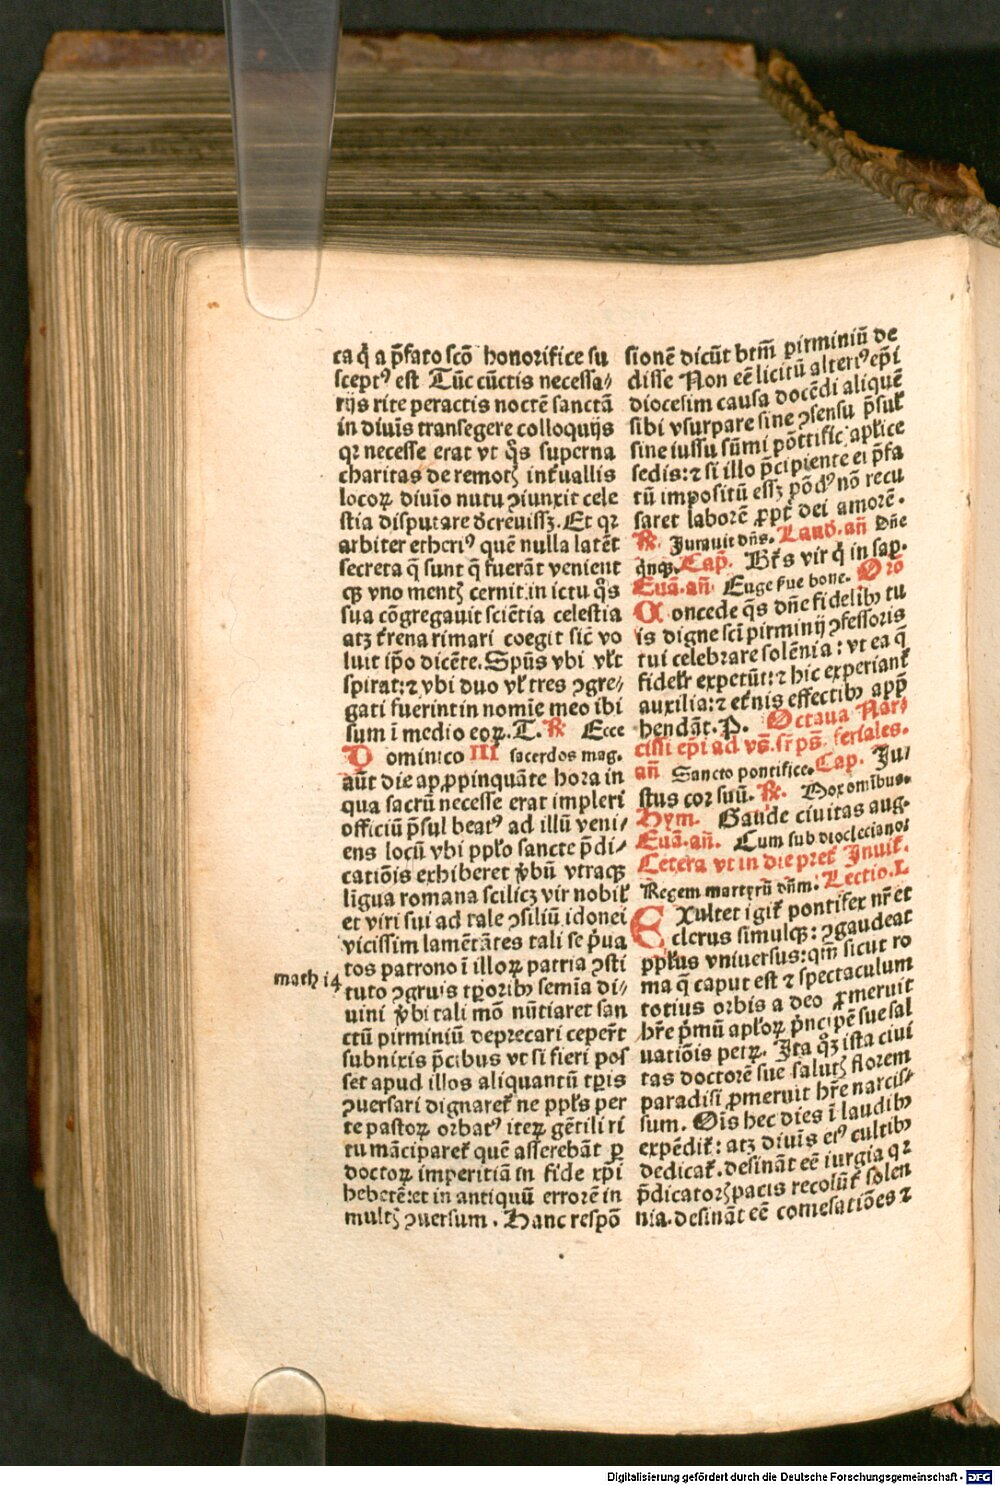 ca q̄ a p̄fato scō honorifice su
sceptꝰ est Tūc cūctis necessa⸗
rijs rite peractis noctē sanctā
in diuīs transegere colloquijs
qꝛ necesse erat vt q̄s superna
charitas de remotꝭ int̄uallis
locoꝝ diuīo nutu ꝯiunxit cele
stia disputare dcreuissꝫ. Et qꝛ
arbiter etheriꝰ quē nulla latēt
secreta q̄ sunt q̄ fuerāt venient
qꝫ vno mentꝭ cernit in ictu q̄s
sua cōgregauit sciētia celestia
atꝫ t̄rena rimari coegit sic̄ vo
luit ip̄o dicēte. Sp̄us vbi vlt
spirat: ⁊ vbi duo vl tres ꝯgre⸗
gati fuerint in nomīe meo ibi
sum ī medio eoꝝ. T. ℟ Ecce
Dominico III sacerdos mag.
aūt die ap̄ꝓpinquāte hora in
qua sacrū necesse erat impleri
officiū p̄sul beatꝰ ad illū veni⸗
ens locū vbi pplo sancte p̄di⸗
catiōis exhiberet v̄bū vtraqꝫ
līgua romana scilicꝫ vir nobil
et viri sui ad tale ꝯsiliū idonei
vicissim lamētātes tali se p̄ua
math 14
tos patrono ī illoꝝ patria ꝯsti
tuto ꝯgruis tꝑoribꝫ semīa di⸗
uini v̄bi tali mō nūtiaret san
ctū pirminiū deprecari ceper̄t
subnixis p̄cibus vt si fieri pos
set apud illos aliquantū tꝑis
ꝯuersari dignaret̄ ne ppls per
te pastoꝝ orbatꝰ iteꝝ gētili ri
tu māciparet̄ quē asserebāt ꝑ
doctoꝝ imperitiā in fide xp̄i
hebetē: et in antiquū errorē in
multꝭ ꝯuersum. Hanc respō
sionē dicūt btm̄ pirminiū de
disse Non eē licitū alteriꝰ ep̄i
diocesim causa docēdi aliquē
sibi vsurpare sine ꝯsensu p̄sul
sine iussu sūmi pōttific̄ aplice
sedis: ⁊ si illo p̄cipiente ei p̄fa
tū impositū essꝫ pōdꝰ nō recu
saret laborē ꝓpt̄ dei amorē.
℟. Jurauit dn̄s. Laud. an̄ Dn̄e
q̄nqꝫ. Cap̄. Bt̄s vir q̄ in sap.
Euā. an̄. Euge s̄ue bone. Orō
Concede q̄s dn̄e fidelibꝫ tu
is digne sc̄i pirminij ꝯfessoris
tui celebrare solēnia: vt ea q̄
fidelr expetūt: ⁊ hic experiant̄
auxilia: ⁊ et̄nis effectibꝫ app̄
hendāt. P. Octaua Nar⸗
cissi ep̄i ad vs̄. sr̄ ps̄. feriales.
an̄ Sancto pontifice. Cap̄. Ju⸗
stus cor suū. ℟. Vox omībus.
Hym. Gaude ciuitas aug.
Euā. an̄. Cum sub dioclecianoꝭ
Cetera vt in die pret̄ Inuit̄.
Regem martyrū dn̄m. Lectio. I.
Exultet igit̄ pontifex nr̄ et
clerus simulqꝫ: ꝯgaudeat
ppl̄us vniuersus: qm̄ sicut ro
ma q̄ caput est ⁊ spectaculum
totius orbis a deo ꝓmeruit
hr̄e p̄mū aploꝝ p̄ncipē sue sal
uatiōis petꝝ. Ita qꝫ ista ciui
tas doctorē sue salutꝭ florem
paradisi ꝓmeruit hr̄e narcis⸗
sum. Oīs hec dies ī laudibꝫ
expēdit̄: atꝫ diuīs eiꝰ cultibꝫ
dedicat̄. desināt eē iurgia qꝛ
p̄dicatorꝭ pacis recolūt̄ solen
nia. desināt eē comesatiōes ⁊
Digitalisierung gefördert durch die Deutsche Forschungsgemeinschaft - DFG